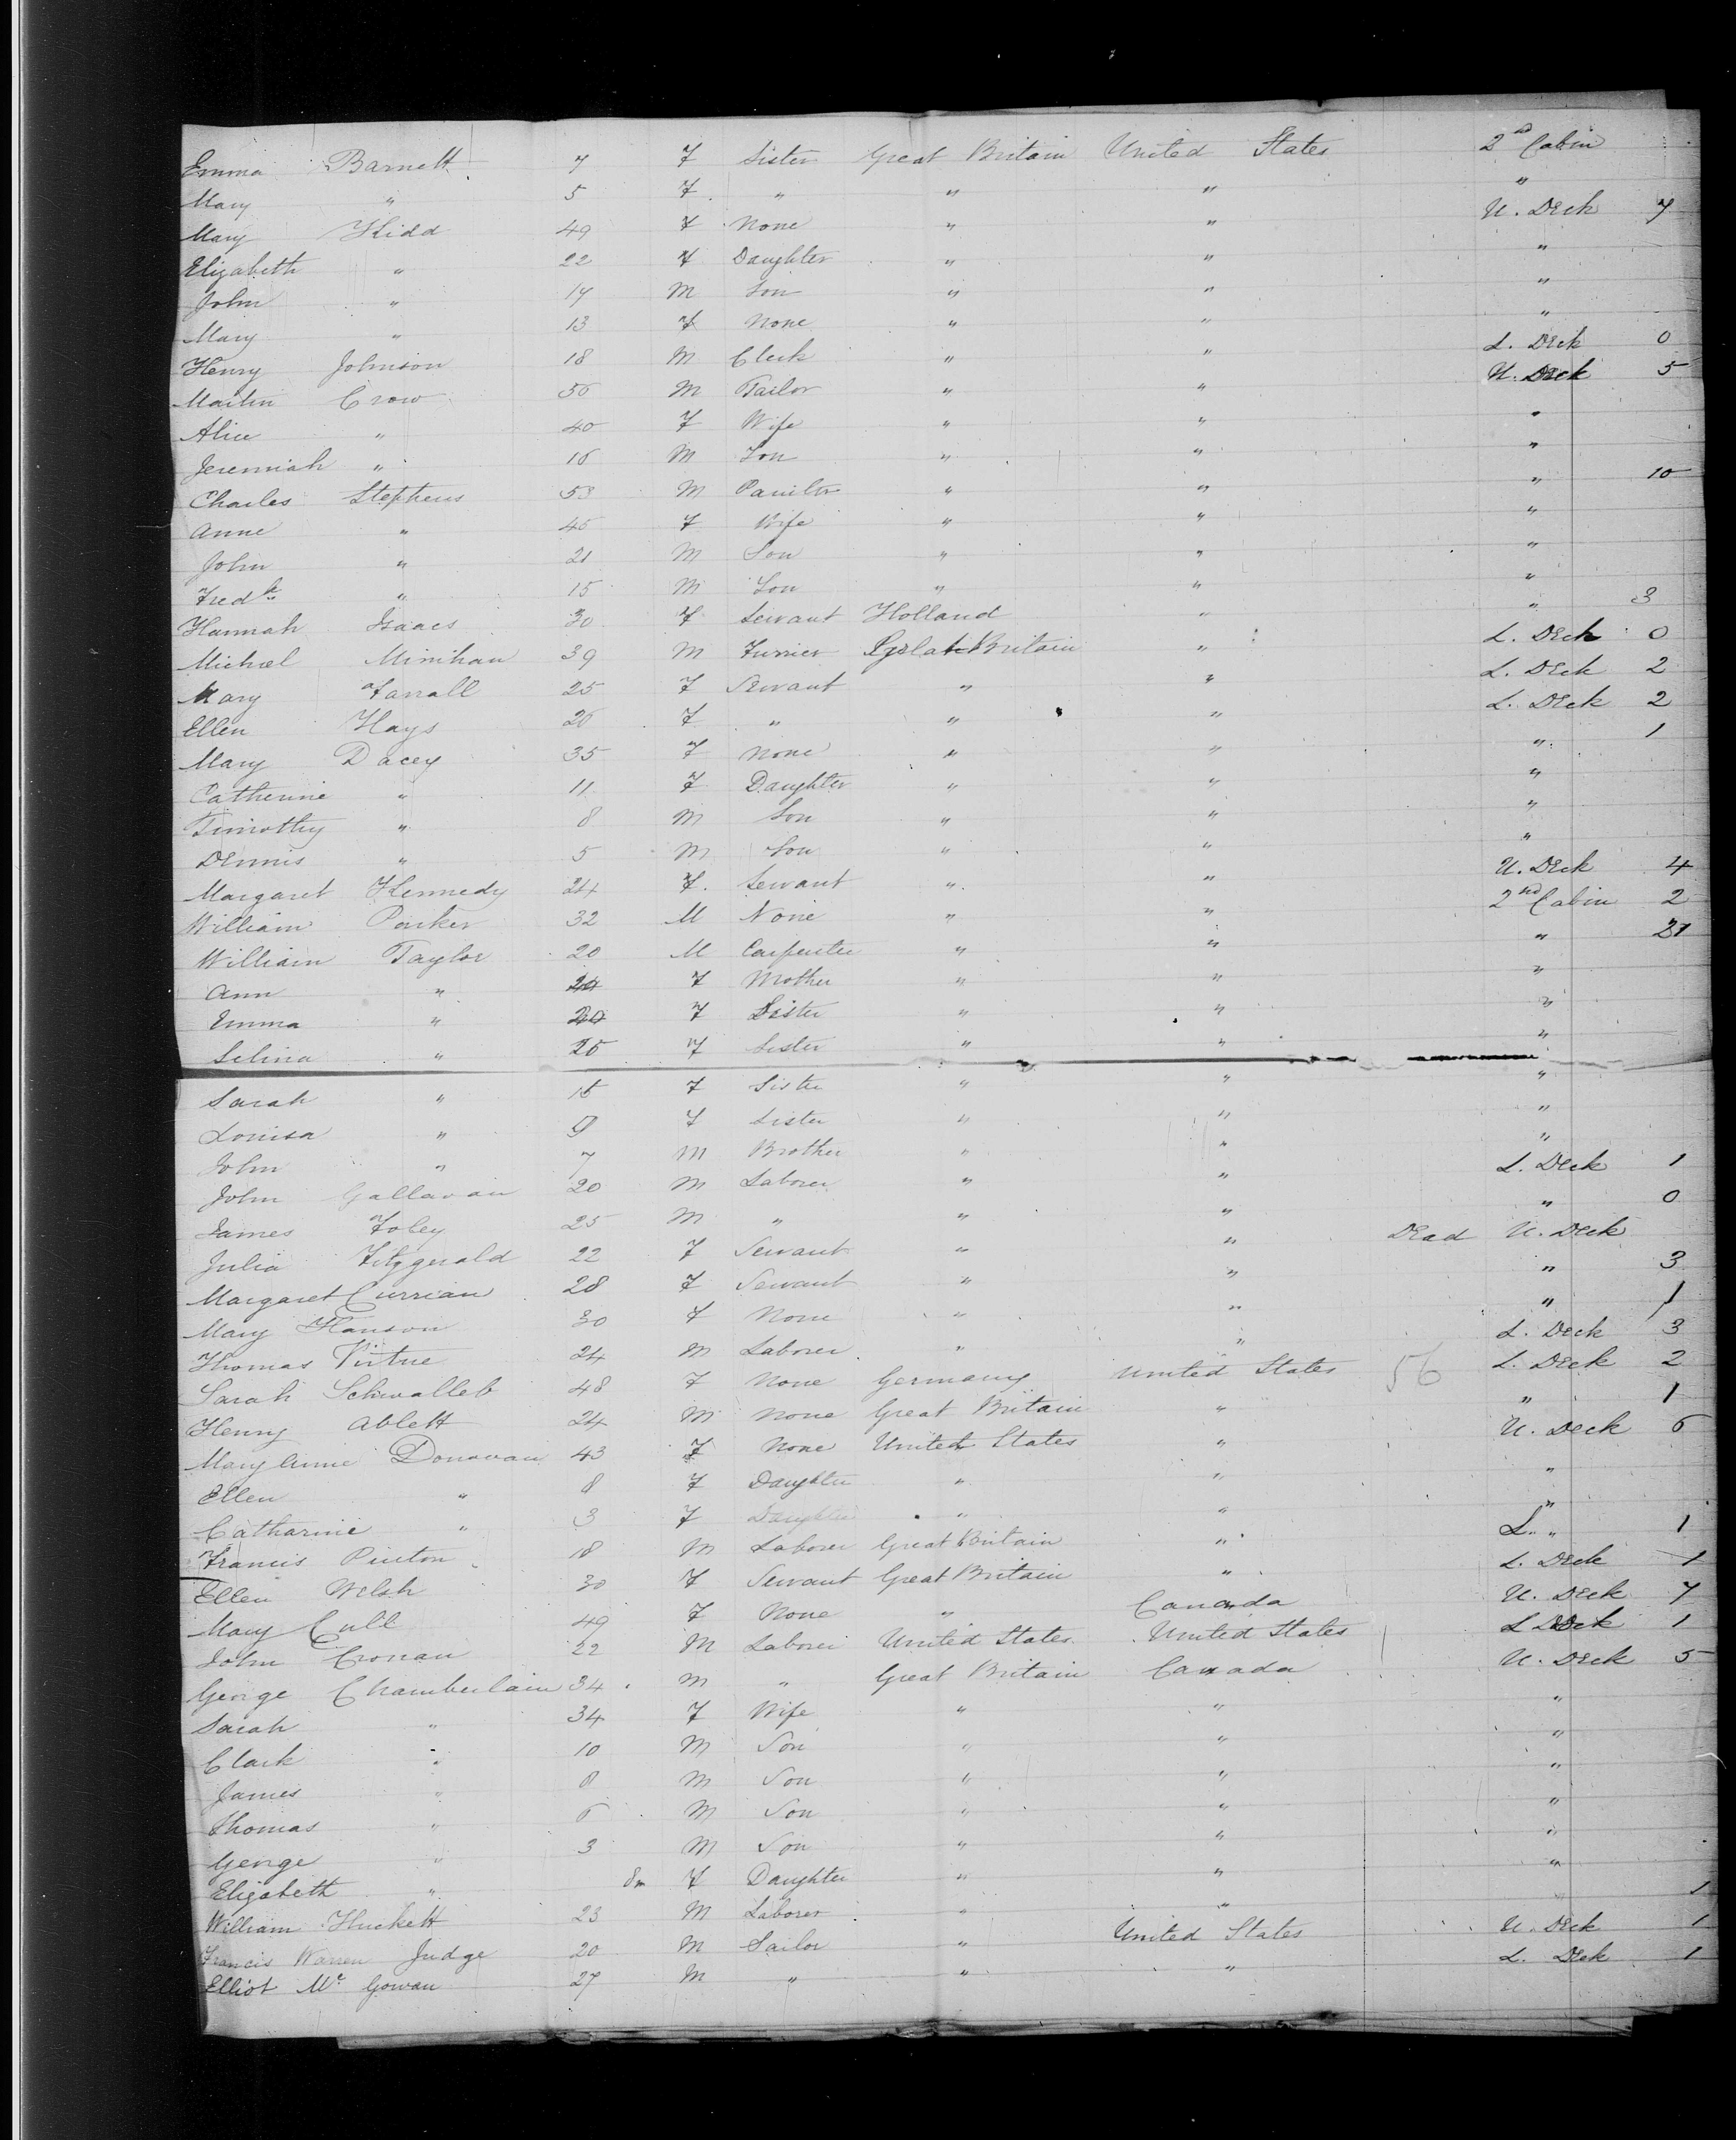 Emma Barnett 7 F Sister Great Britain United States 2nd Cabin
Mary " 5 F " " " "
Mary Kidd 49 F None " " U. Deck 7
Elizabeth " 22 F Daughter " " "
John " 17 M Son " " "
Mary " 13 F None " " "
Henry Johnson 18 M Clerk " " L. Deck 0
Martin Crow 50 M Tailor " " U. Deck 5
Alice " 40 F Wife " " "
Jeremiah " 16 M Son " " "
Charles Stephens 53 M " " " 10
Anne " 45 F Wife " " "
John " 21 M Son " " "
Fredk " 15 M Son " " "
Hannah Isaacs 30 F Servant Holland " " 3
Michael Minihan 39 M Furrier Britain " L. Deck 0
Mary Farrall 25 F Servant " " L. Deck 2
Ellen Hays 26 F " " " L. Deck 2
Mary Dacey 35 F None " " " 1
Catherine " 11 F Daughter " " "
Timothy " 8 M Son " " "
Dennis " 5 M Son " " "
Margaret Kennedy 24 F. Servant " " U. Deck 4
William Parker 32 M None " " 2nd Cabin 2
William Taylor 20 M Carpenter " " " 21
Ann " F Mother " " "
Emma " F Sister " " "
Selina " F Sister " " "
Sarah " 15 F Sister " " "
Louisa " 9 F Sister " " "
John " 7 M Brother " "  "
John Gallavan 20 M Laborer " " L. Deck 1
James Foley 25 M " " " " 0
Julia Fitzgerald 22 F Servant " " Dead U. Deck
Margaret Currian 28 F Servant " " " 3
Mary Hanson 30 F None " " " 1
Thomas Virtue 24 M Laborer " " L. Deck 3
Sarah Schwalleb 48 F None Germany United States 56 L. Deck 2
Henry Ablett 24 M None Great Britain " " 1
Mary Anne Donovan 43 F None United States " U. Deck 6
Ellen " 8 F Daughter " " "
Catharine " 3 F Daughter " " "
Francis Pinton 18 M Laborer Great Britain " L. " 1
Ellen Welsh 30 F Servant Great Britain " L. Deck 1
Mary Cull 49 F None " Canada U. Deck 7
John Cronan 22 M Laborer United States United States L Deck 1
George Chamberlain 34 M " Great Britain Canada U. Deck 5
Sarah " 34 F Wife " " "
Clark " 10 M Son " " "
James " 8 M Son " " "
Thomas " 6 M Son " " "
George " 3 M Son " " "
Elizabeth " 8m F Daughter " " "
William Huckett 23 M Laborer " " 1
Francis Warren Judge 20 M Sailor " United States U. Deck 1
Elliot Mc Gowan 27 M " " " L. Deck 1